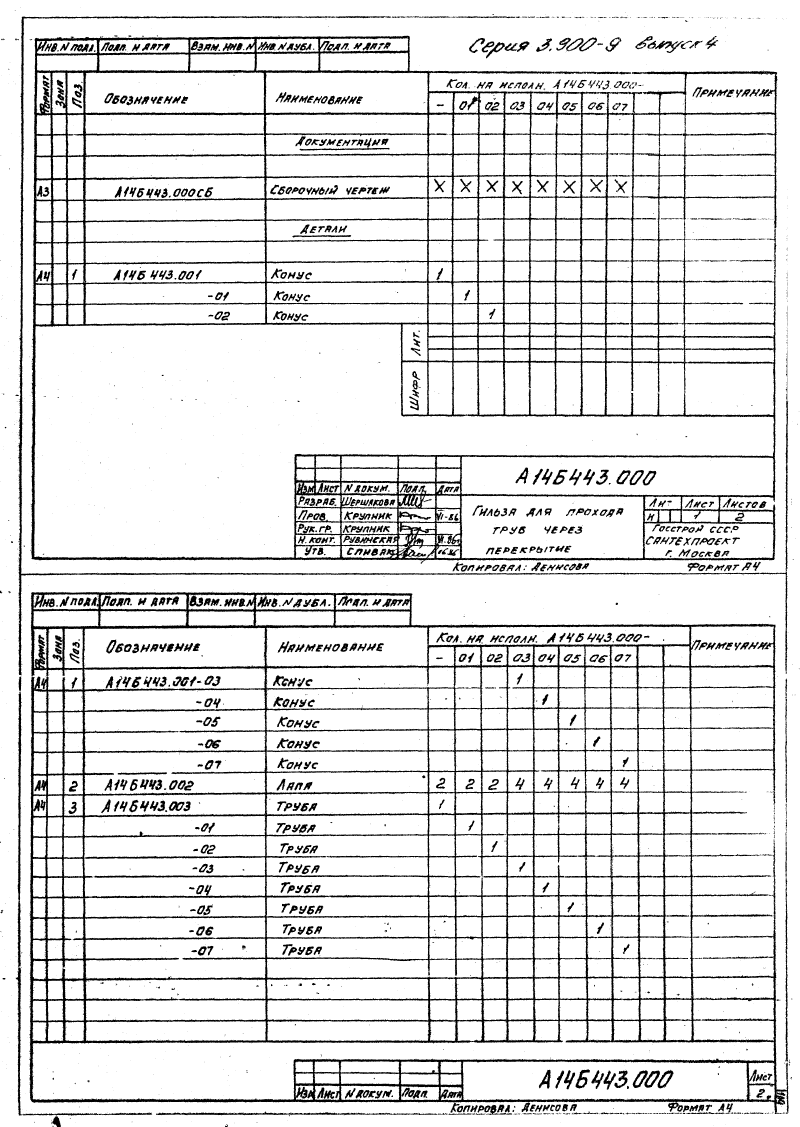 Серия 3.900-9 выпуск 4
Инв. N подл. Подп. и дата Взам. инв. N Инв. N дубл. Подп. и дата
Формат Зона Поз. Обозначение Наименование Кол. на исполн. А14Б443.000- Примечание
- 01 02 03 04 05 06 07
Документация
А3 А14Б443.000СБ Сборочный чертеж X X X X X X X X
Детали
А4 1 А14Б443.001 Конус 1
-01 Конус 1
-02 Конус 1
Лит.
Шифр
А14Б443.000
Изм Лист N докум. Подп. Дата
Разраб. Шершакова
Пров. Крупник VI-86
Рук.гр. Крупник
Н. конт. Рувинская VI.86г
Утв. Спивак 06.86
Гильза для прохода
труб через
перекрытие
Лит Лист Листов
И 1 2
Госстрой СССР
Сантехпроект
г. Москва
Копировал: Денисова Формат А4
Инв. N подл. Подп. и дата Взам. инв. N Инв. N дубл. Подп. и дата
Формат Зона Поз. Обозначение Наименование Кол. на исполн. А14Б443.000- Примечание
- 01 02 03 04 05 06 07
А4 1 А14Б443.001-03 Конус 1
-04 Конус 1
-05 Конус 1
-06 Конус 1
-07 Конус 1
А4 2 А14Б443.002 Лапа 2 2 2 4 4 4 4 4
А4 3 А14Б443.003 Труба 1
-01 Труба 1
-02 Труба 1
-03 Труба 1
-04 Труба 1
-05 Труба 1
-06 Труба 1
-07 Труба 1
А14Б443.000
Лист
2
Изм Лист N докум. Подп. Дата
Копировал: Денисова Формат А4